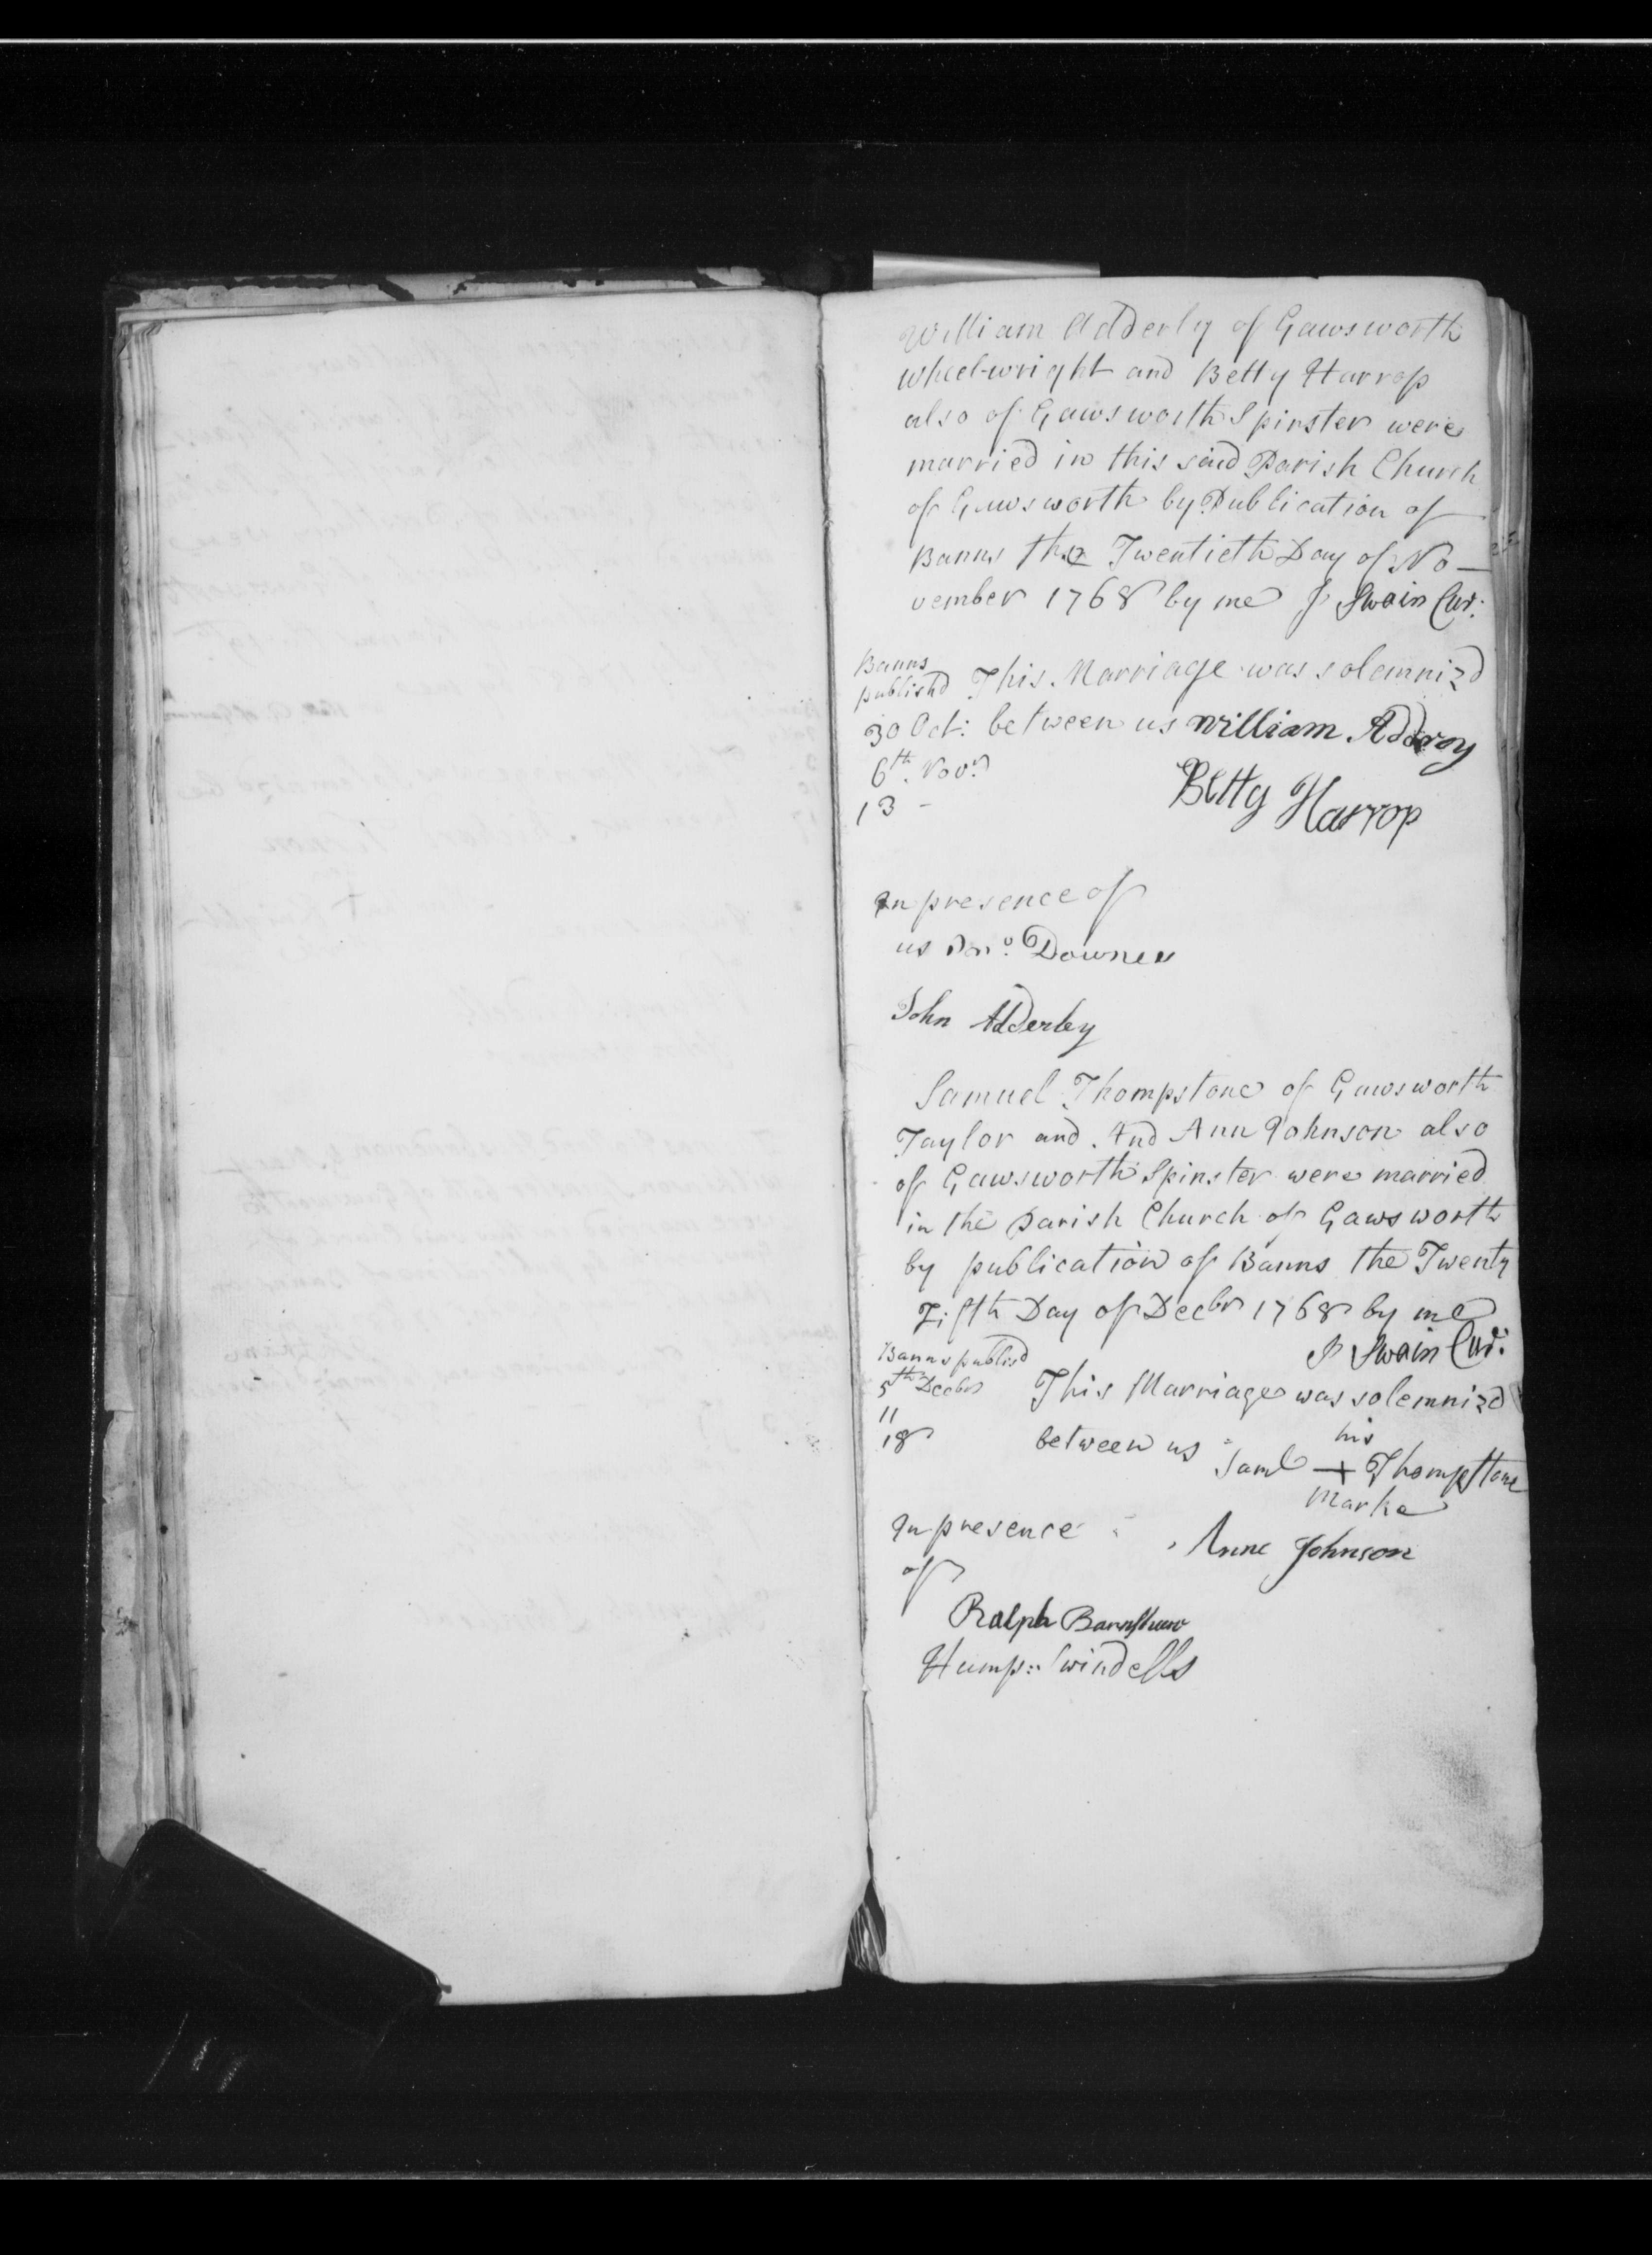 William Adderly of Gawsworth
wheelwright and Betty Harrop
also of Gawsworth Spinster were
married in this said Parish Church
of Gawsworth by Publication of
Banns the Twentieth Day of No-
vember 1768 by me J Swain Cur:
Banns
publishd This Marriage was solemnizd
30 Oct: between us William Adderoy
6th. Novr
13 -
Betty Harrop
In presence of
us Downes
John Adderley
Samuel Thompstone of Gawsworth
Taylor and And Ann Johnson also
of Gawsworth Spinster were married
in the Parish Church of Gawsworth
by publication of Banns the Twenty
Fifth Day of Decbr 1768 by me
J Swain Cur:
Banns publisd
5th Decbr This Marriage was solemnizd
11
18 between us his
Saml + Thompstone
Marke
In presence Anne Johnson
of
Ralph Barnshaw
Hump:: Swindells